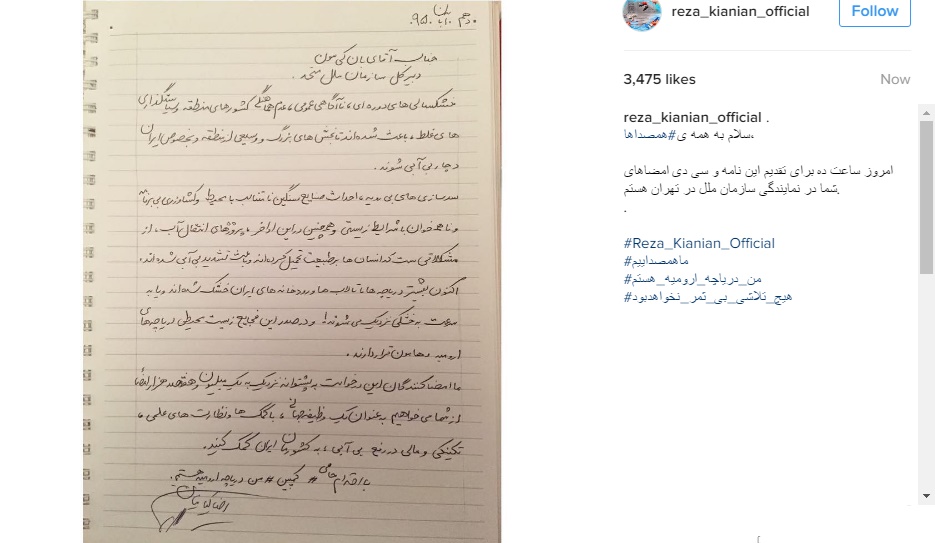 دهم آبان ۹۵.
جناب آقای بان کی مون
دبیر کل سازمان ملل متحد.
خشکسالی های دوره ای، ناآگاهی عمومی، عدم هماهنگی کشورهای منطقه و سیاستگذاری
های غلط، باعث شده اند تا بخش های بزرگ و وسیعی از منطقه و بخصوص ایران
دچار بی آبی شوند.
سدسازی های بی رویه، احداث صنایع سنگین نامتناسب با محیط و کشاورزی بی برنامه
و ناهمخوان با شرایط زیستی و همچنین در این اواخر، پروژه های انتقال آب، از
مشکلاتی ست که انسان ها بر طبیعت تحمیل کرده اند و باعث تشدید بی آبی شده اند.
اکنون بیشتر دریاچه ها، تالاب ها و رودخانه های ایران خشک شده اند و یا به
سرعت به خشکی نزدیک می شوند! و در صدر این فجایع زیست محیطی دریاچه های
ارومیه و هامون قرار دارند.
ما امضا کنندگان این درخواست به پشتوانه نزدیک به یک میلیون و هفتصد هزار امضاء
از شما می خواهیم به عنوان یک وظیفه جهانی، با کمک ها و نظارت های علمی،
تکنیکی و مالی در رفع بی آبی، به کشورمان ایران کمک کنید.
با احترام حامی # کمپین # من دریاچه ارومیه هستم.
رضا کیانیان
reza_kianian_official
Follow
3,475 likes
Now
reza_kianian_official .
سلام به همه ی#همصداها،
امروز ساعت ده برای تقدیم این نامه و سی دی امضاهای
شما در نمایندگی سازمان ملل در تهران هستم.
.
#Reza_Kianian_Official
#ماهمصداییم
#من_دریاچه_ارومیه_هستم
#هیچ_تلاشی_بی_ثمر_نخواهدبود